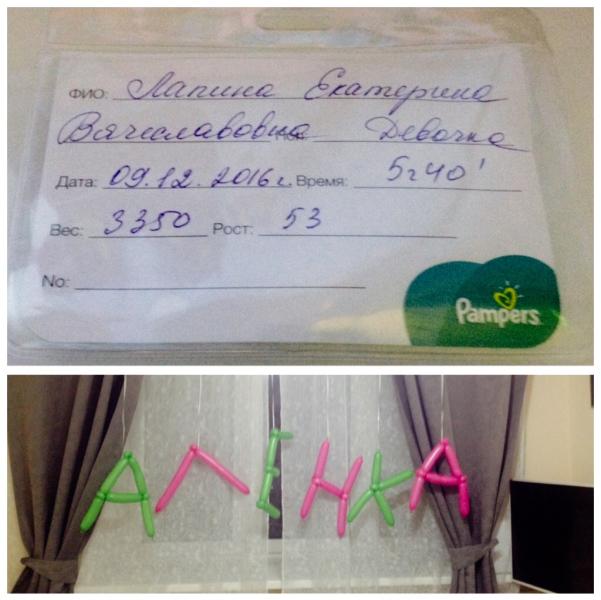 ФИО: Лапина Екатерина
Вячеславовна Пол: Девочка
Дата: 09.12.2016г. Время: 5ч40'
Вес: 3350 Рост: 53
No:
Pampers
АЛЁНКА